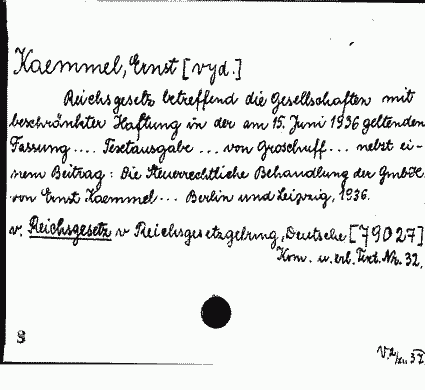 Kaemmel, Ernst [vyd.]
Reichsgesetz betreffend die Gesellschaften mit
beschränkter Haftung in der am 15. Juni 1936 geltenden
Fassung .... Textausgabe ... von Groschuff ... nebst ei-
nem Beitrag: Die steuerrechtliche Behandlung der GmbH.
von Ernst Kaemmel ... Berlin und Leipzig, 1936.
v. Reichsgesetz v Reichsgesetzgebung, Deutsche [79027]
Kom. u. erl. Text. Nr. 32.